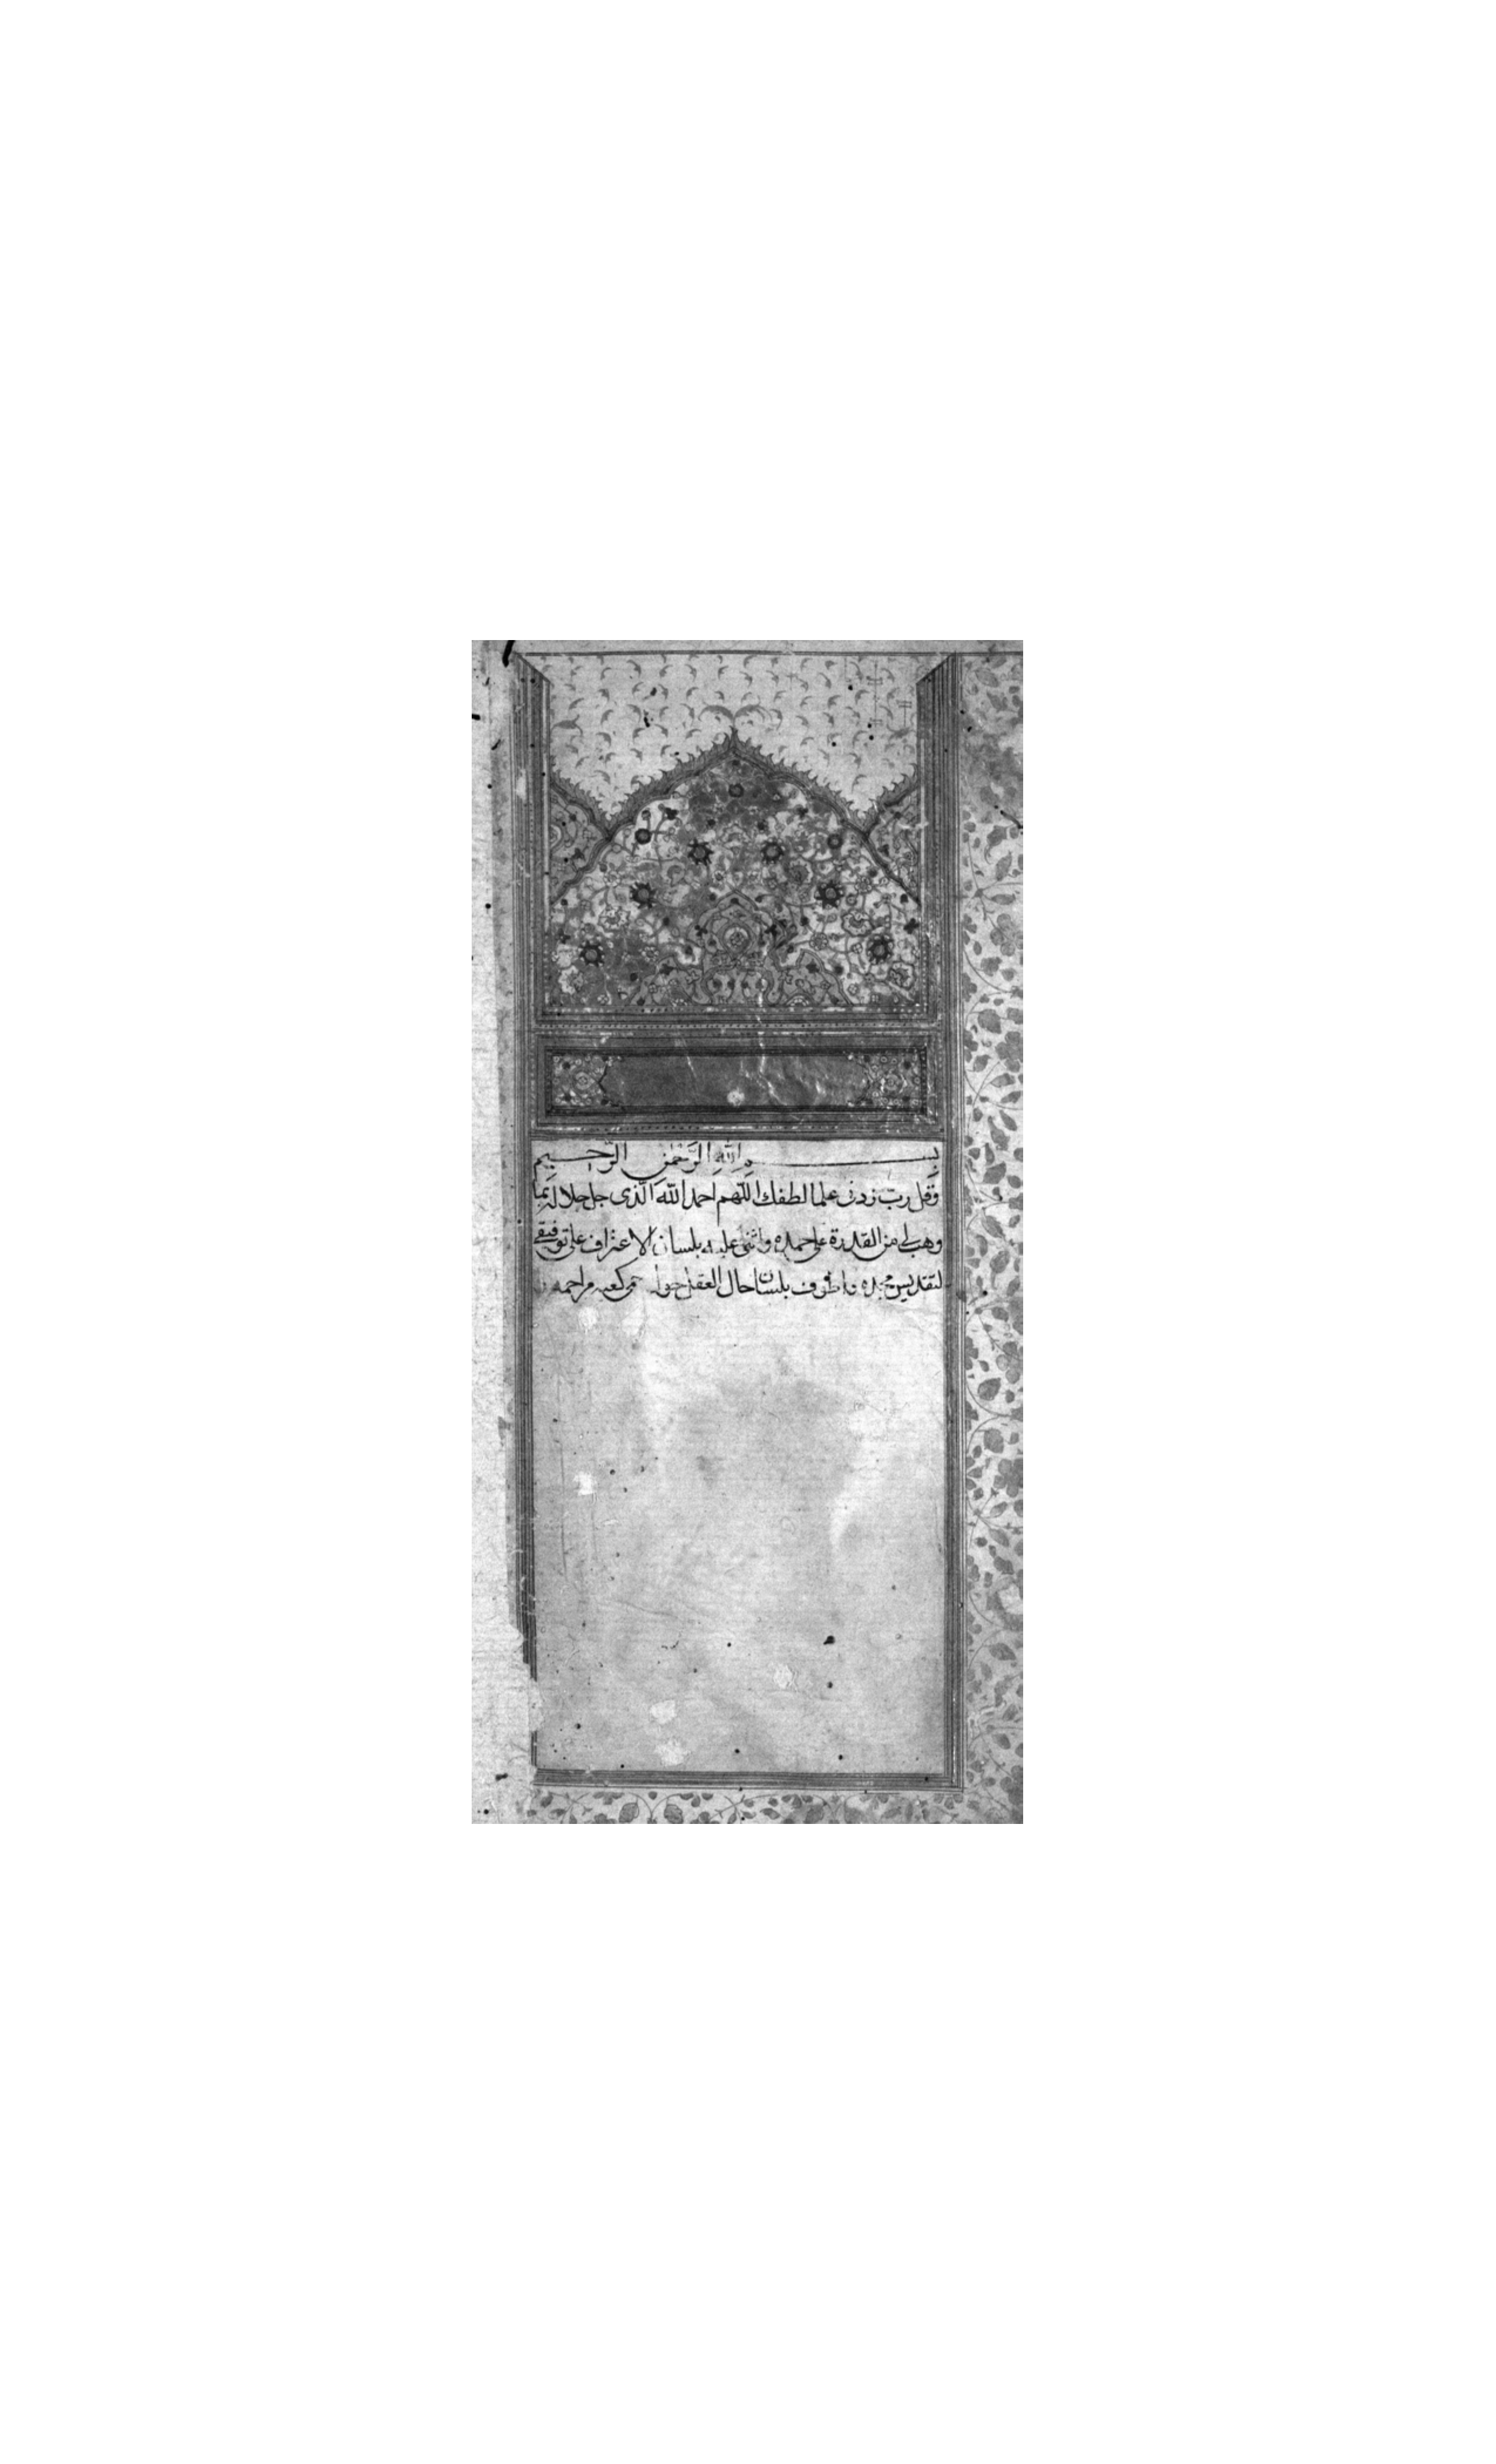 بِسْمِ اللّٰهِ الرَّحْمٰنِ الرَّحِيمِ
وقل ربّ زدنى علما لطفك اللّهم احمد اللّه الّذى جل جلاله بما
وهب لى من القدرة على حمده واثنى عليه بلسان الاعتراف على توفيقى
لتقديس مجده واطوف بلسان حال العقل حول حمى كعبة مراحمه